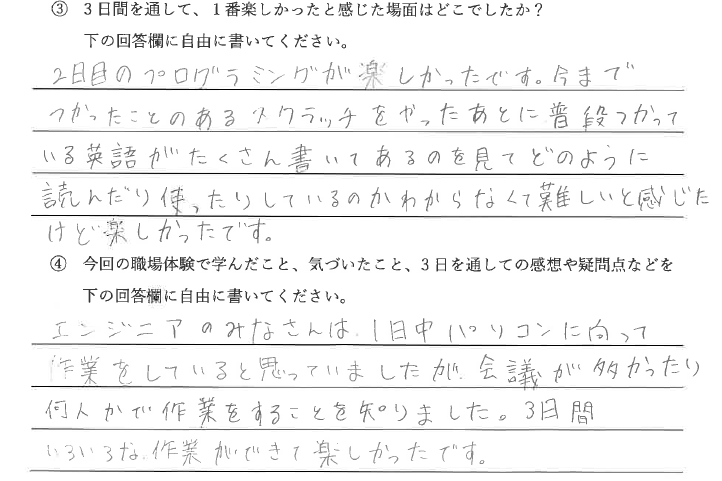 ③ 3日間を通して、1番楽しかったと感じた場面はどこでしたか？
下の回答欄に自由に書いてください。
2日目のプログラミングが楽しかったです。今まで
つかったことのあるスクラッチをやったあとに普段つかって
いる英語がたくさん書いてあるのを見てどのように
読んだり使ったりしているのかわからなくて難しいと感じた
けど楽しかったです。
④ 今回の職場体験で学んだこと、気づいたこと、3日を通しての感想や疑問点などを
下の回答欄に自由に書いてください。
エンジニアのみなさんは、1日中パソコンに向って
作業をしていると思っていましたが、会議が多かったり
何人かで作業をすることを知りました。3日間
いろいろな作業ができて楽しかったです。